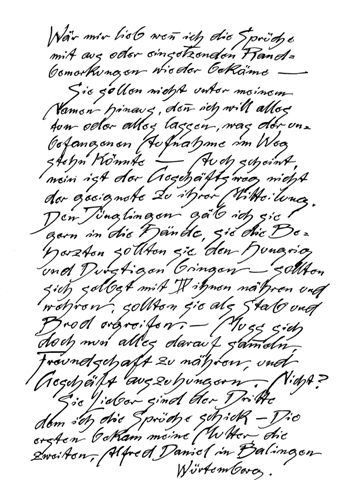 Wär mir lieb weñ ich die Sprüche
mit aus oder eingesetzenden Rand-
bemerkungen wieder bekäme —
Sie sollen nicht unter meinem
Namen hinaus, deñ ich will alles
tun oder alles lassen, was der un-
befangenen Aufnahme im Weg
stehn könnte — Auch scheint,
mein ist der Geschäftsweg nicht
der geeignete zu ihrer Mitteilung.
Den Jünglingen gäb ich sie
gern in die Hände, sie die Be-
herzten sollten sie den Hungrig
und Durstigen bringen — sollten
sich selbst mit ihnen nähren und
wehren, sollten sie als Stab und
Brod ergreifen. — Muss sich
doch nun alles darauf sameln
Freundschaft zu nähren, und
Geschäft auszuhungern. Nicht?
Sie Lieber sind der Dritte
dem ich die Sprüche schick — Die
ersten bekam meine Mutter die
zweiten, Alfred Daniel in Balingen
Würtemberg.